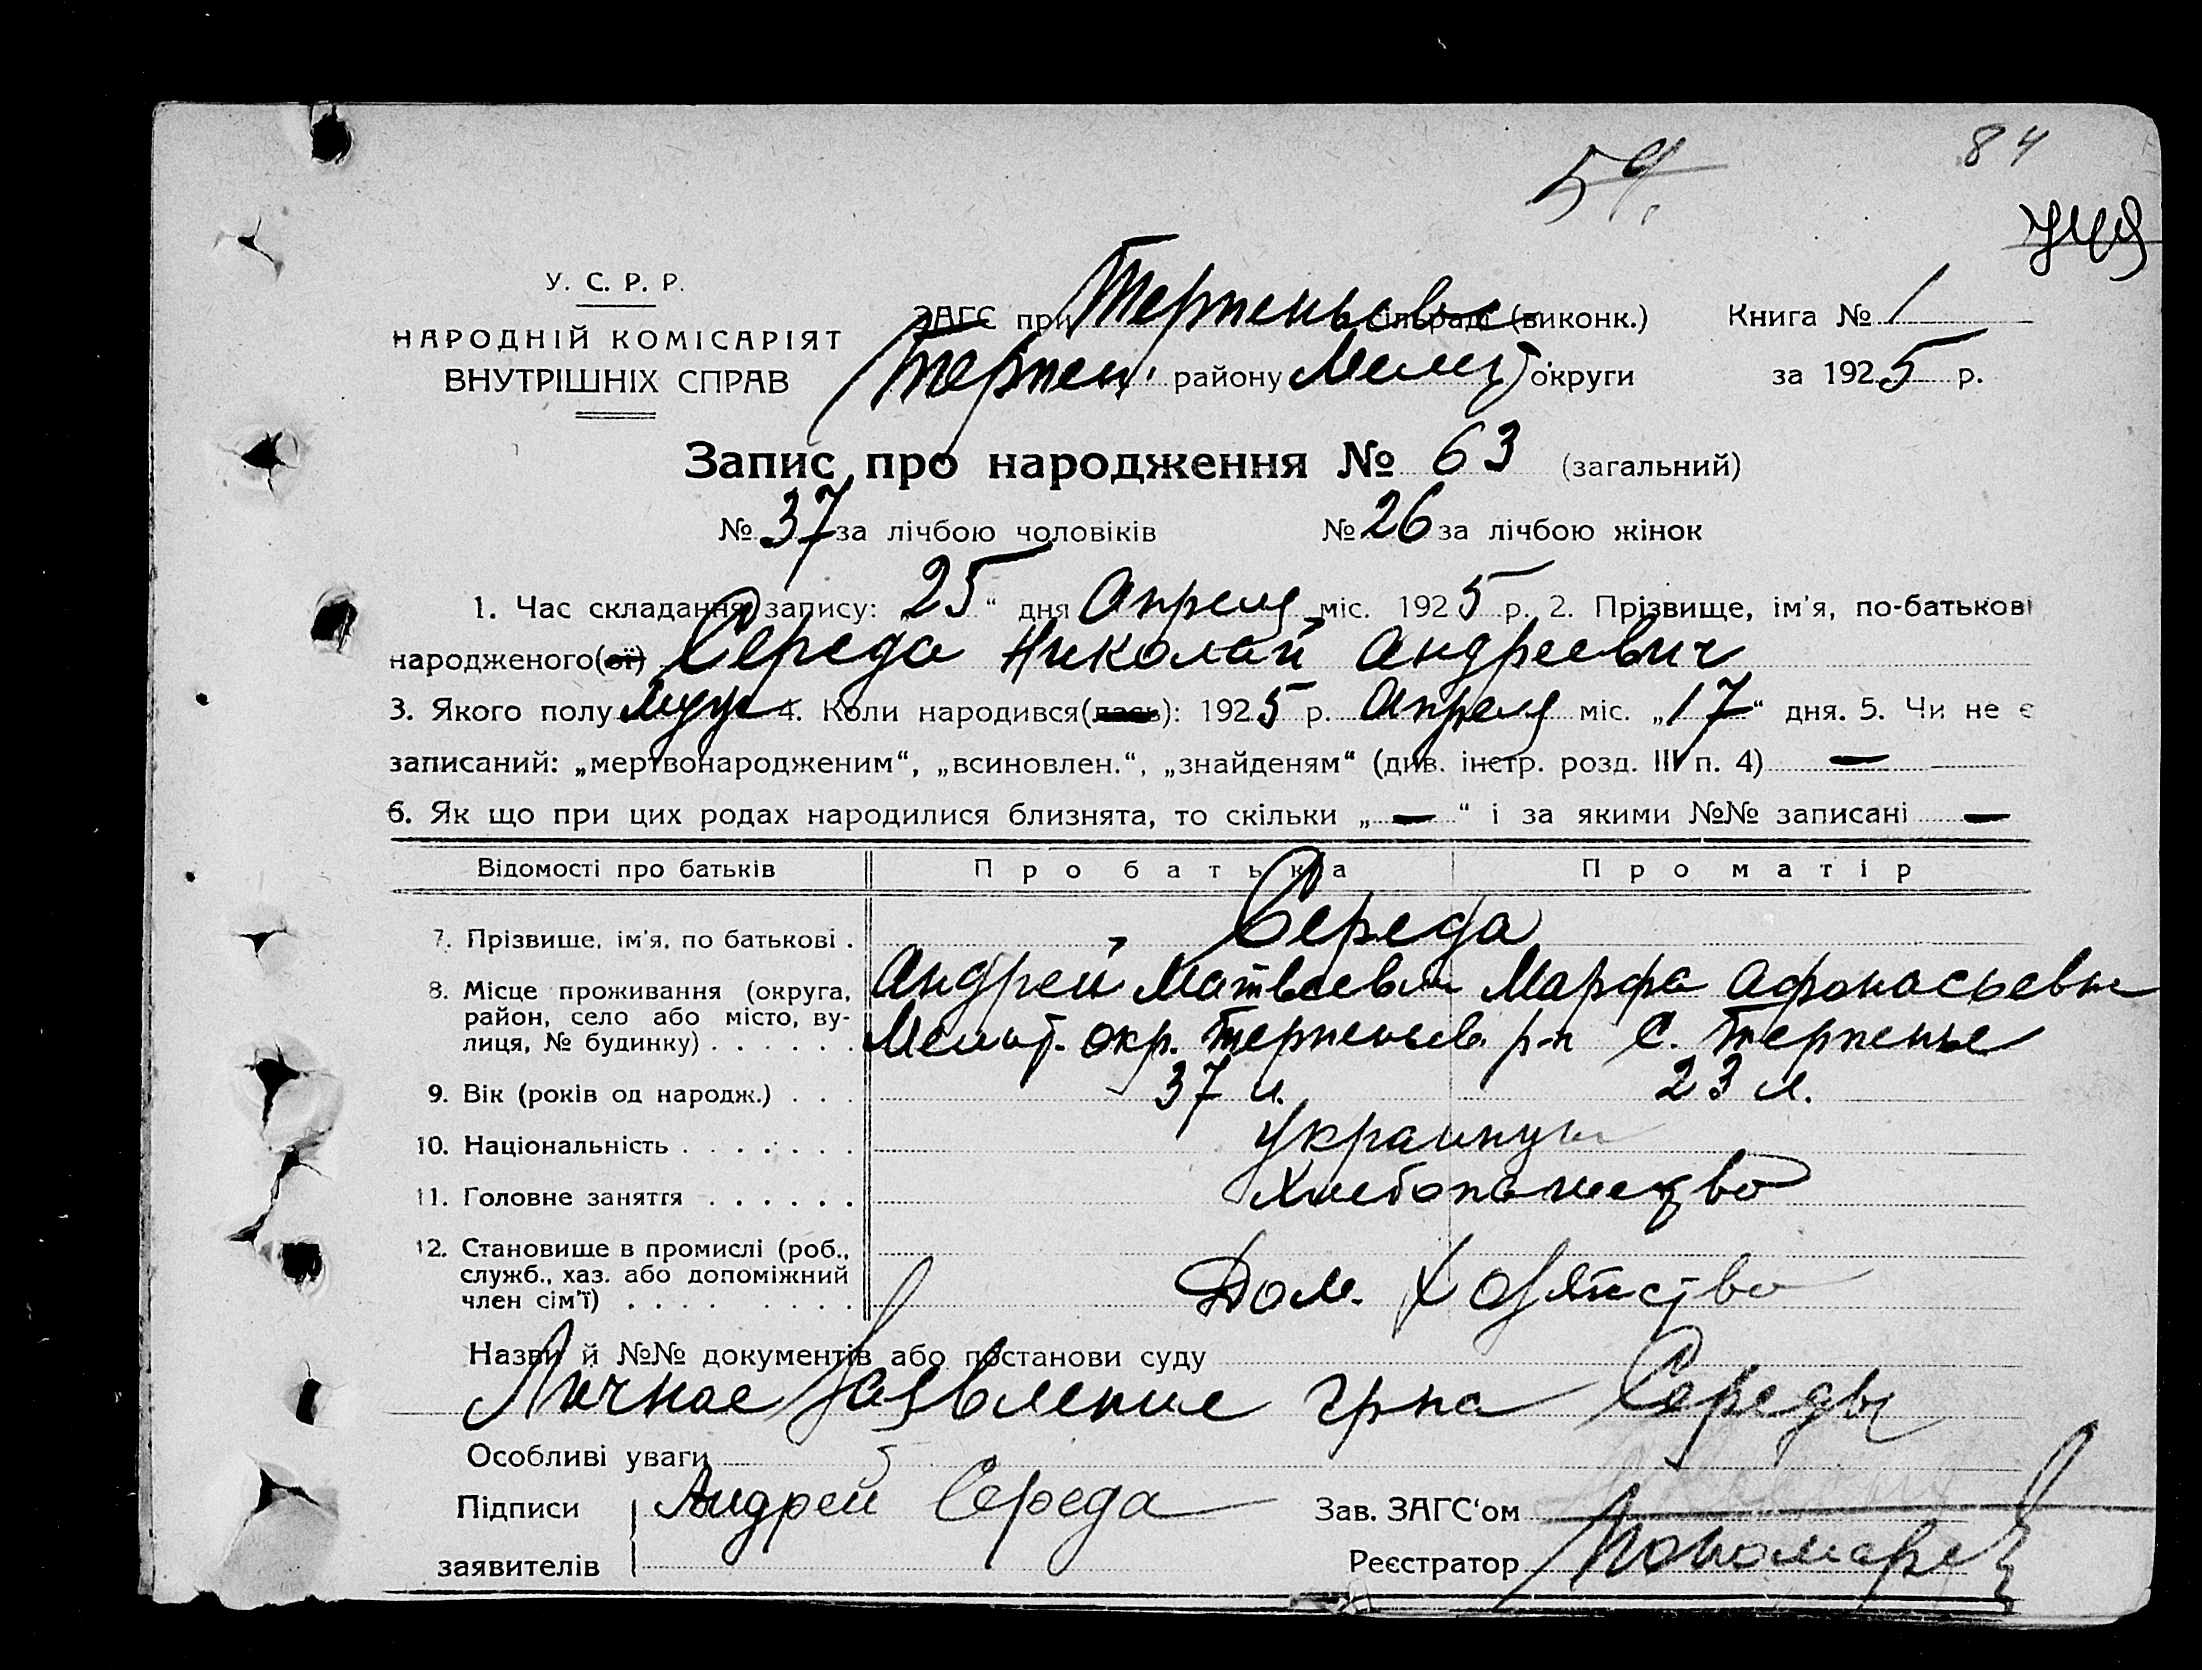 54
84
У. С. Р. Р.
НАРОДНІЙ КОМІСАРІЯТ
ВНУТРІШНІХ СПРАВ
ЗАГС при Терпеньевс сільраді (виконк.) Книга № 1
Терпен. району Мелит округи за 1925 р.
Запис про народження № 63 (загальний)
№ 37 за лічбою чоловіків № 26 за лічбою жінок
1. Час складання запису: „25“ дня Апреля міс. 1925 р. 2. Прізвище, ім'я, по-батькові
народженого(ої) Середа Николай Андреевич
3. Якого полу муж 4. Коли народився(лась): 1925 р. Апреля міс. „17“ дня. 5. Чи не є
записаний: „мертвонародженим“, „всиновлен.“, „знайденям“ (див. інстр. розд. III п. 4) —
6. Як що при цих родах народилися близнята, то скільки „—“ і за якими №№ записані —
Відомості про батьків Про батька Про матір
7. Прізвище, ім'я, по батькові . Середа
Андрей Матвеевич Марфа Афонасьевна
8. Місце проживання (округа,
район, село або місто, ву-
лиця, № будинку) . . . . . . Мелит. окр. Терпеньев. р-н С. Терпенье
9. Вік (років од народж.) . . . 37 л. 23 л.
10. Національність . . . . . . . Украинцы
11. Головне заняття . . . . . . Хлебопашество
12. Становище в промислі (роб.,
служб., хаз. або допоміжний
член сім'ї) . . . . . . . . . Дом. Хозяйство
Назви й №№ документів або постанови суду
Личное Заявление гр-на Середы
Особливі уваги
Підписи Андрей Середа Зав. ЗАГС'ом
заявителів Реєстратор Пономарев